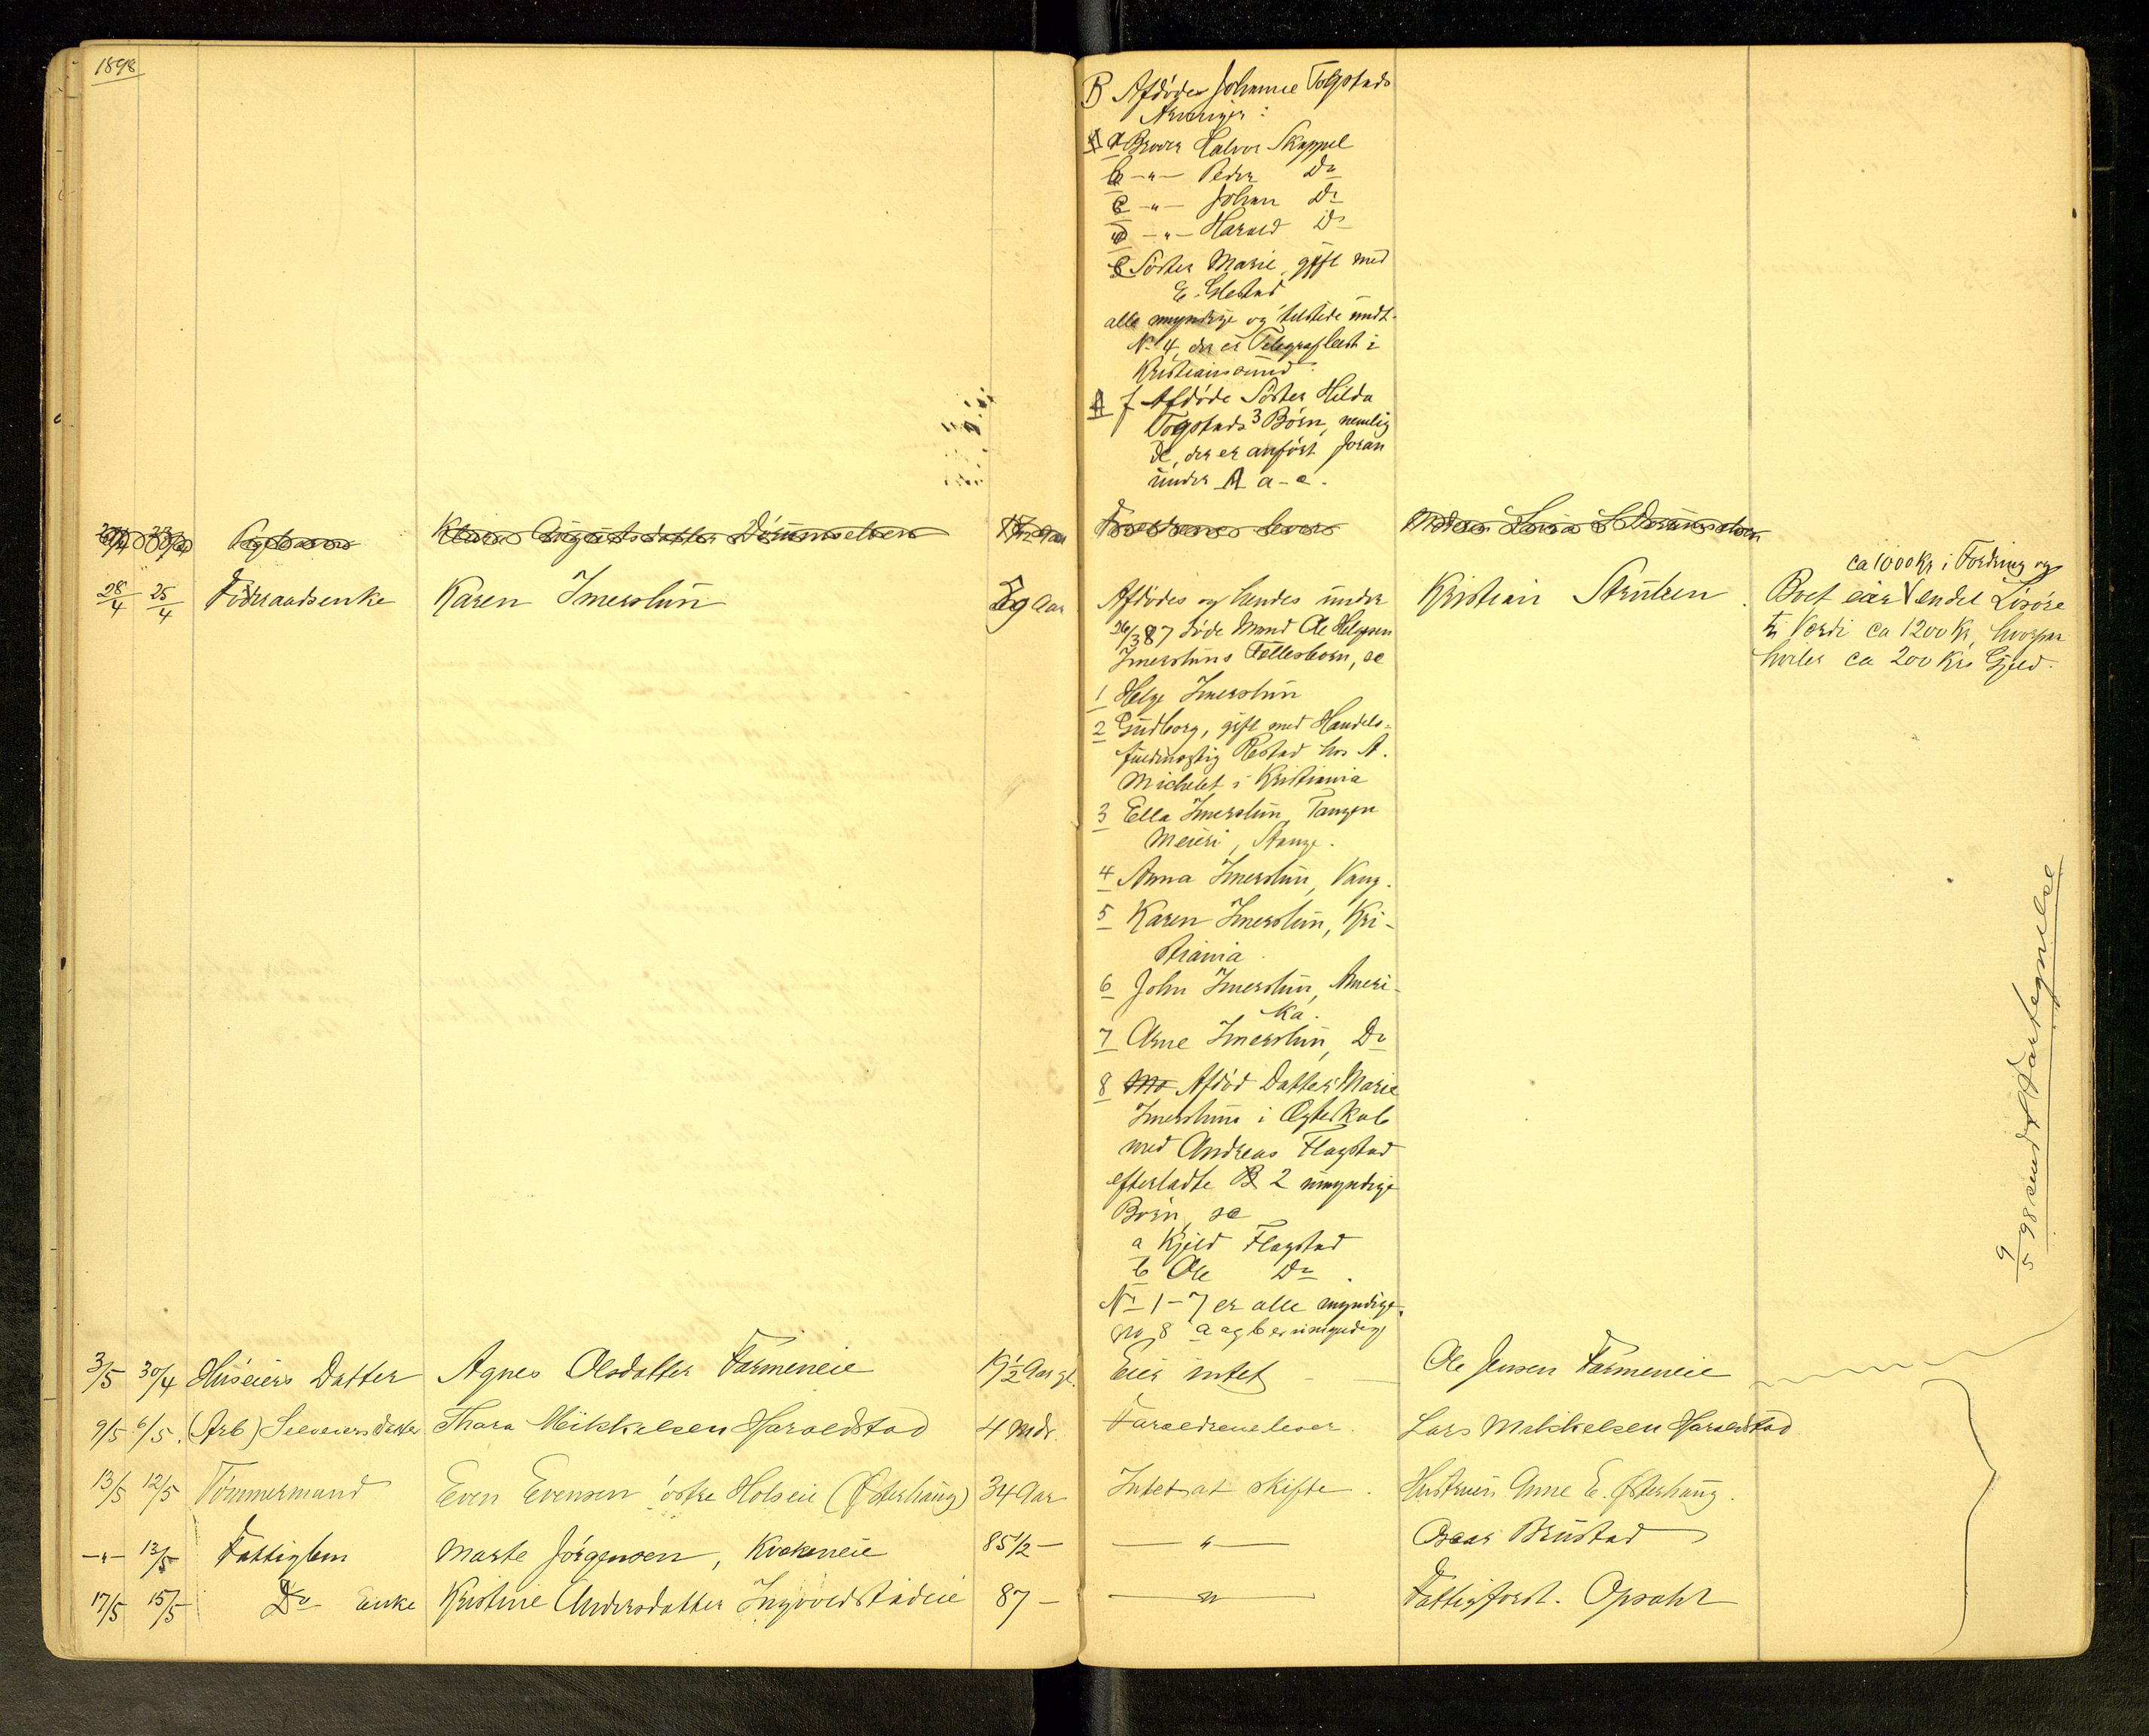 1898
B Afdødes Johanne Togstads
Arvinger:
a Broder Halvor Skappel
b -"- Peder Do
c -"- Johan Do
d -"- Harald Do
e Søster Marie, gift med
E. Glestad
alle myndige og tilstede undt.
No 4, der er Telegrafbest i
Kristiansund.
f Afdøde Søster Hilda
Togstads 3 Børn, nemlig
de, der er anført foran
under A a-c.
Klara Augustsdatter
28/4 25/4 Føderaadsenke Karen Imerslun 59 Aar Afdødes og hendes under Kristian Struben. ca 1000 kr i Fordring og
Boet eier endel Løsøre
26/3 87 døde Mand Ole Helgesen
til Værdi ca 1200 kr, hvorpaa
Imersluns Fællesbørn, se
hviler ca 200 Krs Gjeld.
1 Helge Imerslun
2 Gudborg, gift med Handels-
fuldmægtig Restad hos A.
Michelet i Kristiania
3 Ella Imerslun, Tangen
Meieri, Stange.
4 Anna Imerslun, Vang.
5 Karen Imerslun, Kri-
stiania.
6 John Imerslun, Ameri-
ka.
7 Arne Imerslun, Do
8 Ma Afdød Datter Marie
Imerslun i Ægteskab
med Andreas Flagstad
efterladte B 2 umyndige
Børn, se
a Kjeld Flagstad
b Ole Do.
No 1-7 er alle myndige.
No 8 a og b er umyndig
9/5 98 sendt Fortegnelse
3/5 30/4 Huseiers Datter Agnes Olsdatter Farmeneie 19 1/2 Aar gl. Eier intet Ole Jensen Farmeneie
9/5 6/5 (Arb) Selveiers Datter Thora Mikkelsen Haraldstad 4 Mdr. Foreldrene lever. Lars Mikkelsen Haraldstad
13/5 12/5 Tømmermand Even Evensen østre Holseie (Østerhaug) 34 Aar Intet at skifte. Hustruen Anne E. Østerhaug.
-"- 13/5 Fattiglem Marte Jørgensen, 85 1/2 - -"- Oscar Brustad
17/5 15/5 Do Enke Kristine Andersdatter Ingvoldstadeie 87 - -"- Fattigforst. Opsahl